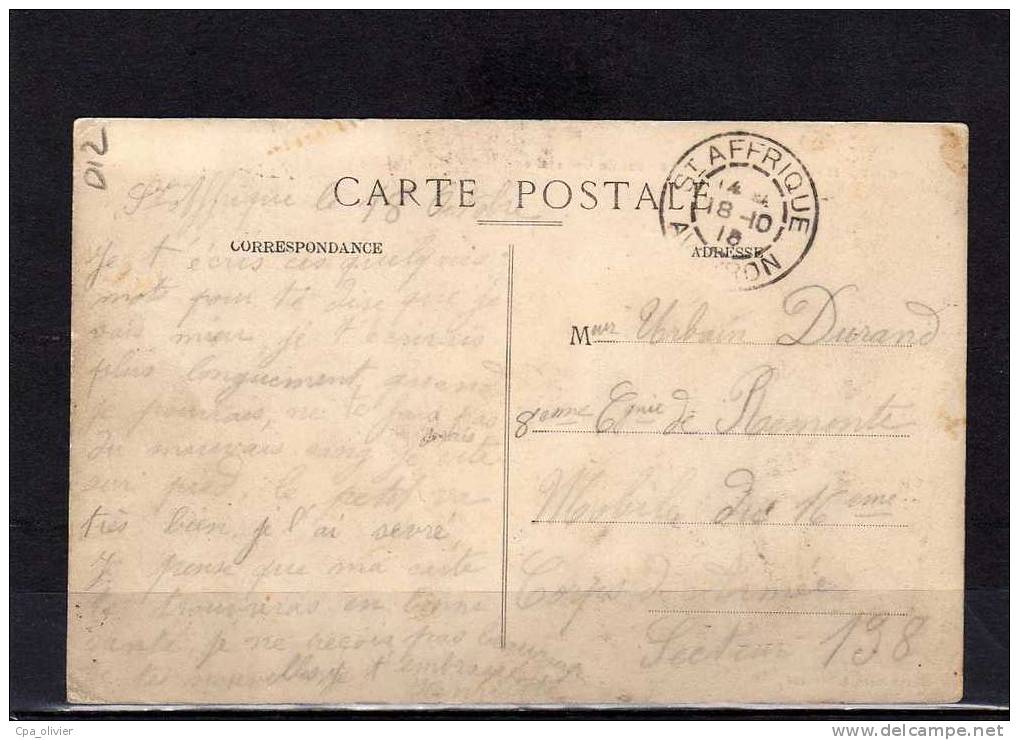 012
ST. AFFRIQUE
18-10
18
AVEYRON
CARTE POSTALE
CORRESPONDANCE
ADRESSE
St Affrique le 18 Octobre
Je t'écris ces quelques
mots pour te dire que je
vais mieux je t'écrirais
plus longuement quand
je pourrais, ne te fais pas
du mauvais sang je
sur pied, le petit va
très bien je l'ai sevré,
Je pense que ma carte
te trouveras en bonne
santé je ne reçois pas
de tes nouvelles, je t'embrasse
Meur Urbain Durand
8eme Cgnie de Remonte
Mobile du 16eme
Corps d'Armée
Secteur 138
Cpa_olivier
delcampe.net